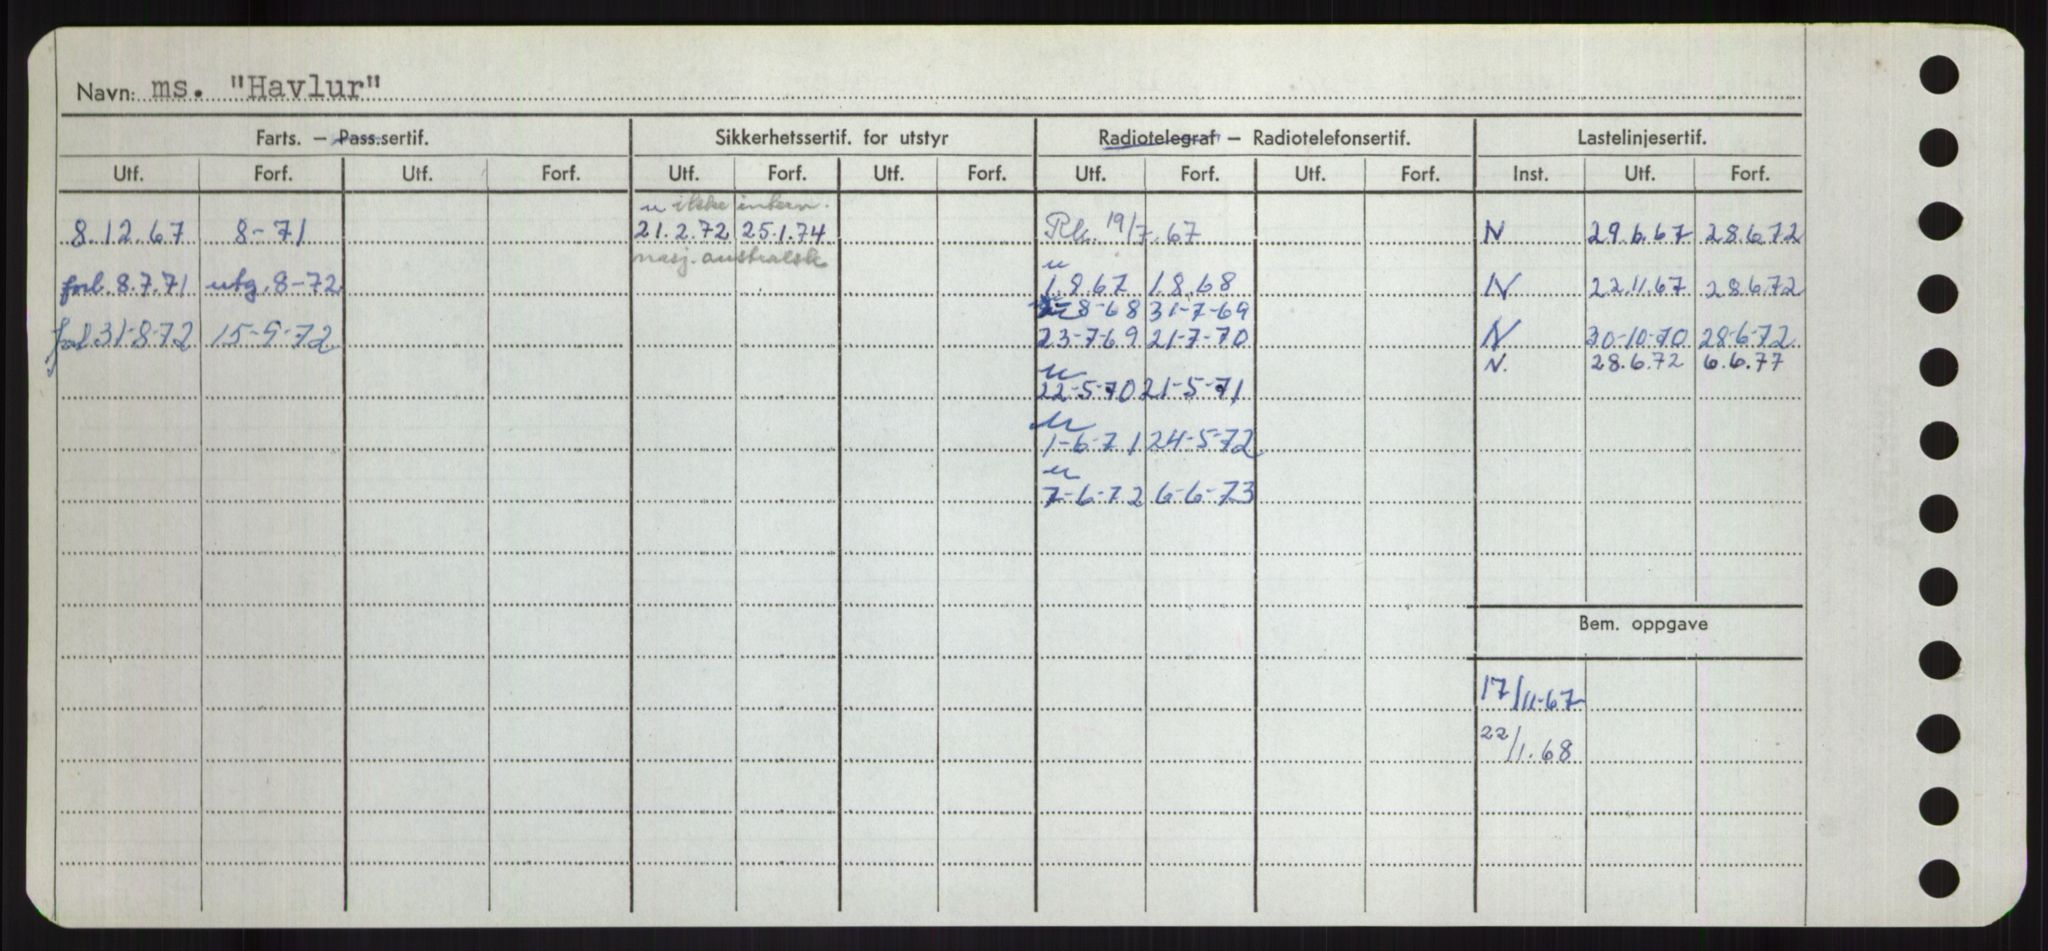 Navn: ms. "Havlur"
Farts. — Pass.sertif. Sikkerhetssertif. for utstyr Radiotelegraf — Radiotelefonsertif. Lastelinjesertif.
Utf. Forf. Utf. Forf. Utf. Forf. Utf. Forf. Utf. Forf. Utf. Forf. Inst. Utf. Forf.
u ikke intern.
8.12.67 8-71 21.2.72 25.1.74 19/7.67 N 29.6.67 28.6.72
nasj. australsk
u
forl. 8.7.71 utg. 8-72 1.8.67 1.8.68 N 22.11.67 28.6.72
8-68 31-7-69
31-8-72 15-9-72 23-7-69 21-7-70 N 30-10-70 28-6-72
N. 28.6.72 6.6.77
u
22-5-70 21-5-71
u
1-6-71 24-5-72
u
7-6-72 6-6-73
Bem. oppgave
17/11-67
22/1.68